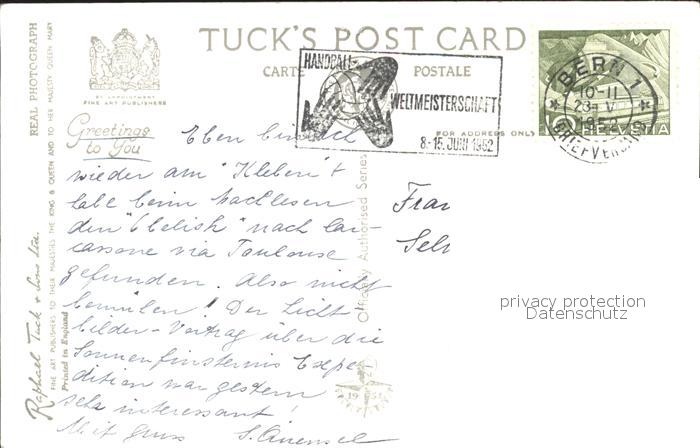 TUCK'S POST CARD
CARTE POSTALE
BY APPOINTMENT
FINE ART PUBLISHERS
FOR ADDRESS ONLY
HANDBALL-
WELTMEISTERSCHAFT
8.-15. JUNI 1952
BERN 1
10-11
1952
BRIEFVERSAND
HELVETIA
Greetings
to You
REAL PHOTOGRAPH
Raphael Tuck & Sons Ltd.
FINE ART PUBLISHERS TO THEIR MAJESTIES THE KING & QUEEN AND TO HER MAJESTY QUEEN MARY
Printed in England
Officially Authorised Series
Eben bin ich
wieder am "Kleben" &
habe beim
den nach Car-
cassonne via Toulouse
gefunden. Also nicht
bemühen! Der Licht
bilder-Vortrag über die
Sonnenfinsternis Expe
dition war gestern
sehr interessant!
Mit Gruss
Frau
privacy protection
Datenschutz